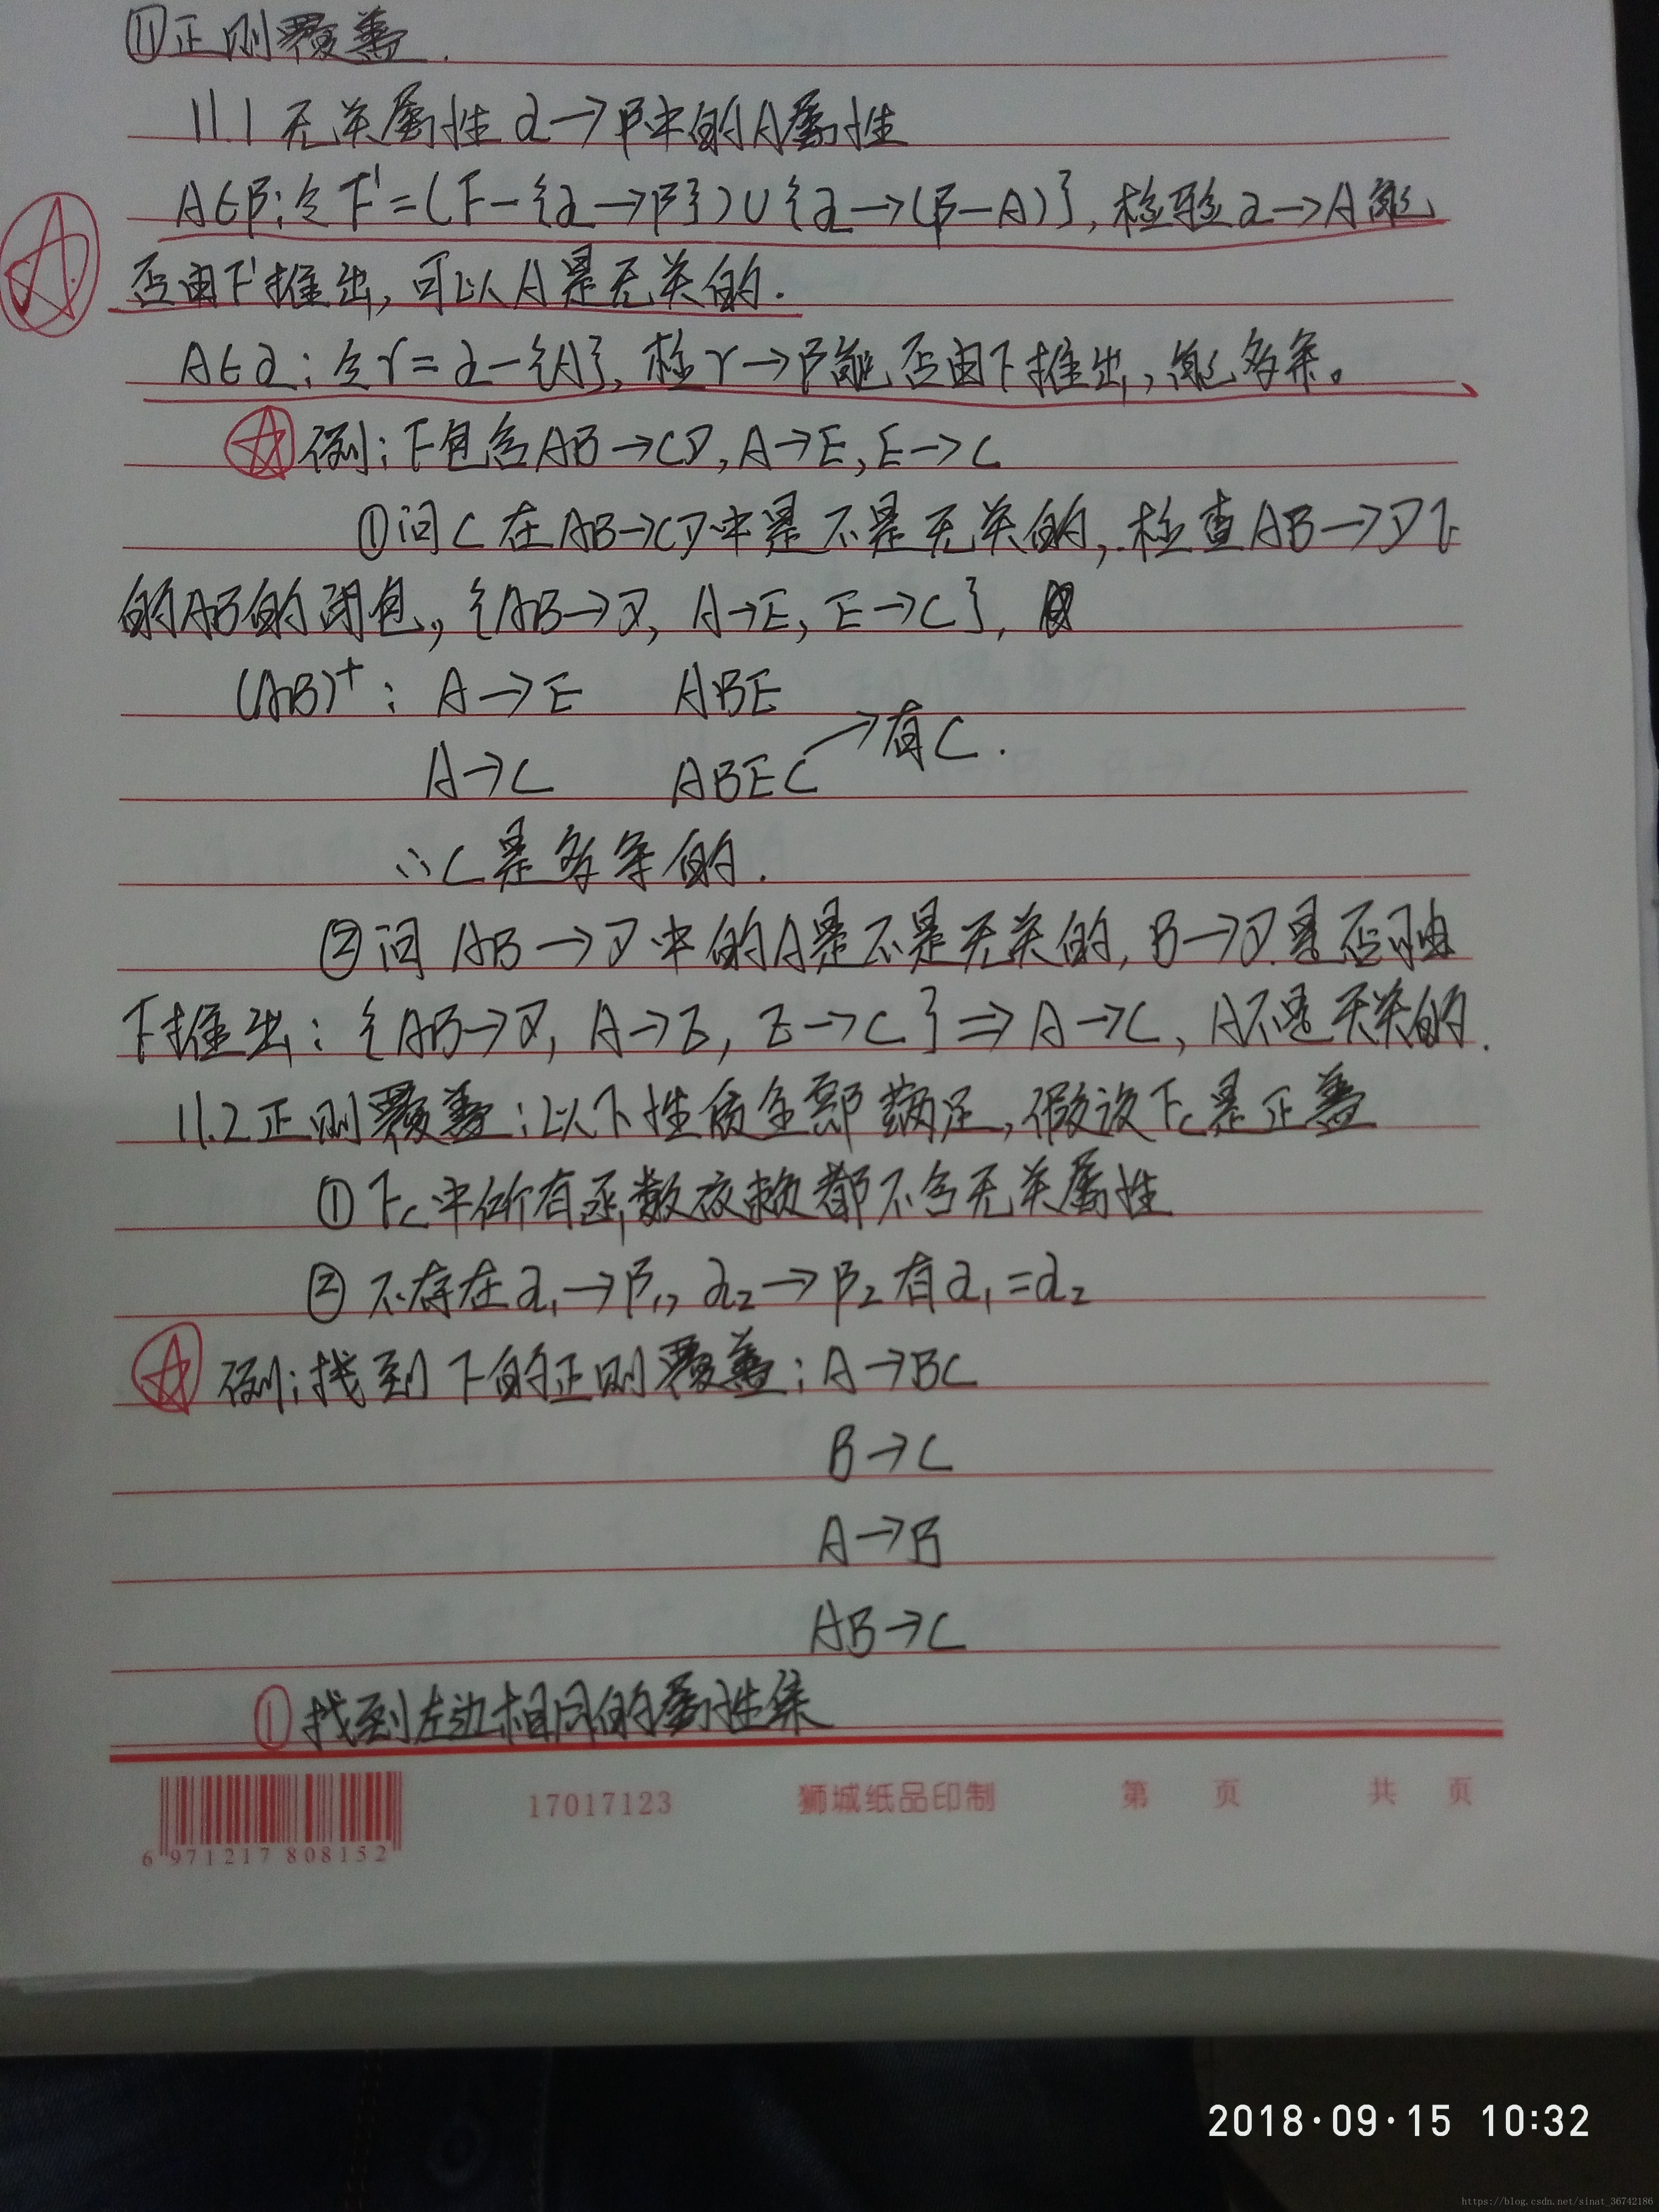 ⑪正则覆盖.
11.1 无关属性 α→β中的A属性
A∈β:令F'=(F-{α→β})∪{α→(β-A)},检验α→A能
否由F'推出,可以A是无关的.
A∈α:令γ=α-{A},检γ→β能否由F推出,能多余。
例:F包含AB→CD,A→E,E→C
①问C在AB→CD中是不是无关的,检查AB→D下
的AB的闭包,{AB→D, A→E, E→C},
(AB)⁺: A→E ABE
A→C ABEC →有C.
∴C是多余的.
②问 AB→D中的A是不是无关的,B→D是否可由
F推出:{AB→D, A→E, E→C}⇒A→C, A不是无关的.
11.2正则覆盖:以下性质全部满足,假设Fc是正盖
①Fc中所有函数依赖都不含无关属性
②不存在α₁→β₁,α₂→β₂有α₁=α₂
例:找到F的正则覆盖:A→BC
B→C
A→B
AB→C
①找到左边相同的属性集
6 971217 808152
17017123 狮城纸品印制 第 页 共 页
2018·09·15 10:32
https://blog.csdn.net/sinat_36742186